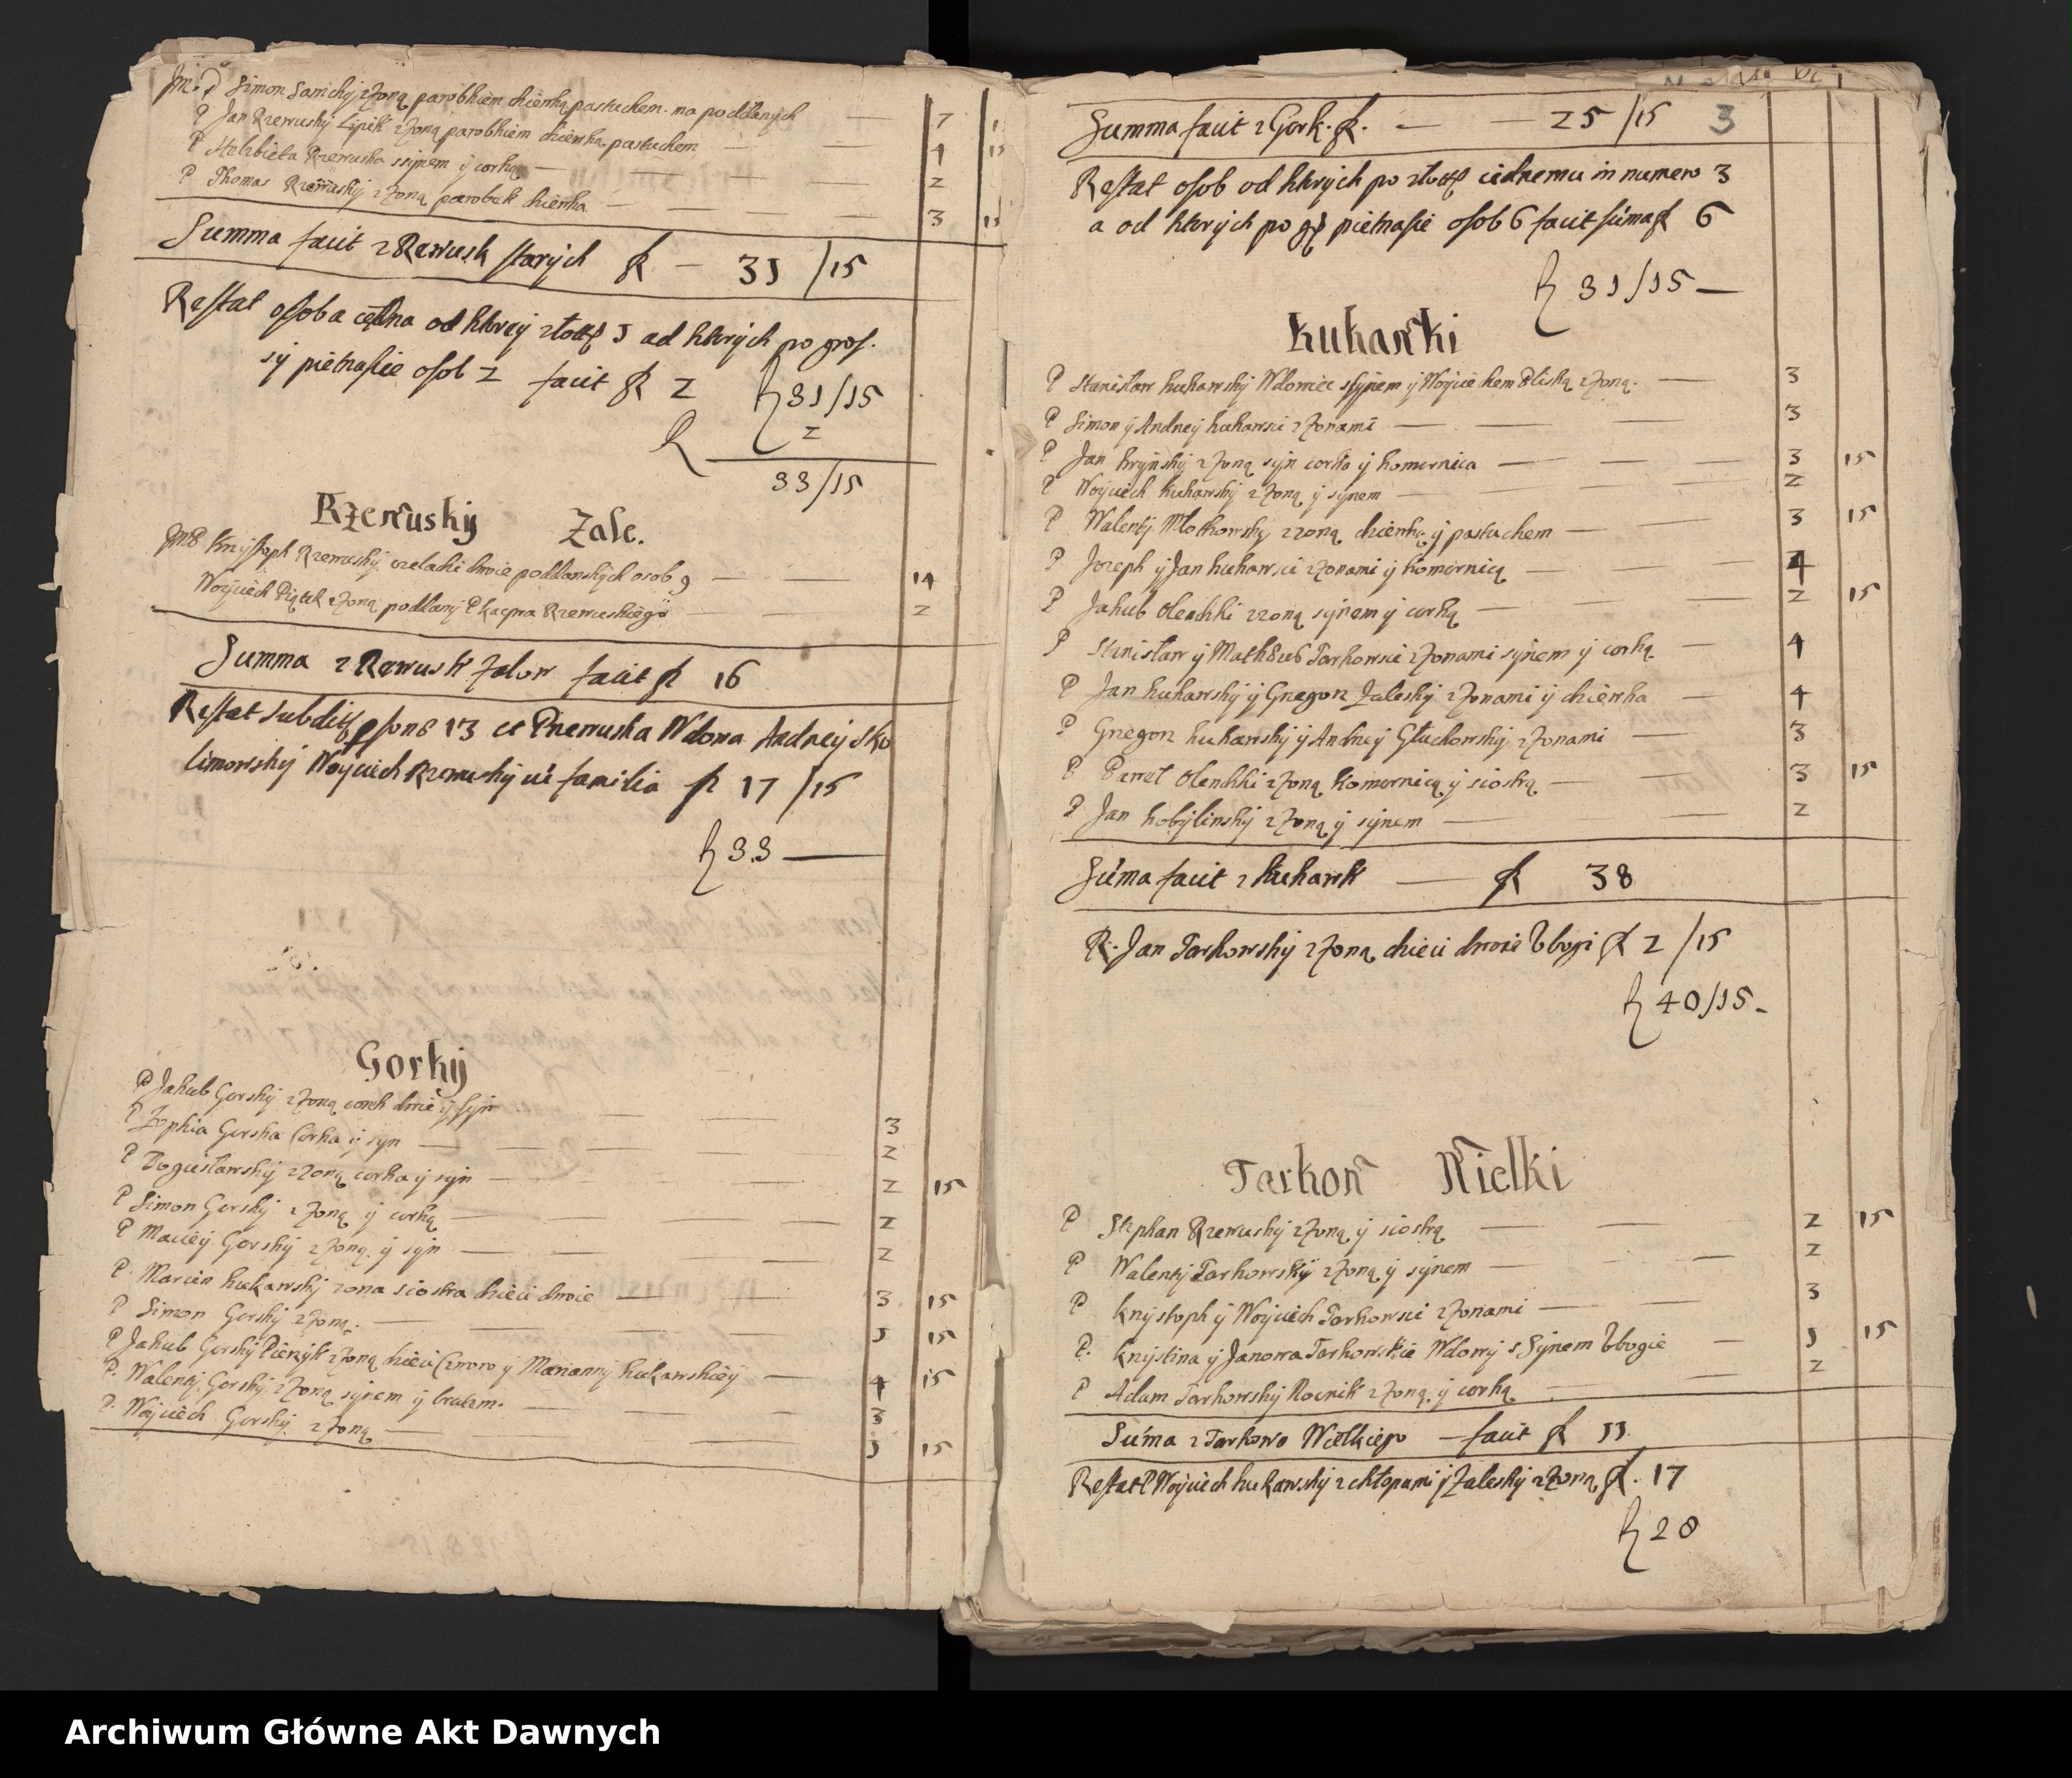 Jm. P Simon Sarnickij z Zoną parobkiem dziewką pastuchem. na poddanych — 7 1
P Jan Rzewuskij Lipik z Zoną parobkiem dziewką pastuchem — 4 15
P Helzbieta Rzewuska ssijnem ij corką — 2
P Thomas Rzewuskij z Zoną parobek dziewka — 3 15
Summa facit z Rzewusk starych f — 31/15
Restat osoba iedna od ktorej złott 1 ad ktorych po gros.
sij pietnascie osob 2 facit f 2 f 31/15
2
33/15
Rzewuskij Zale.
JmP Krzysstoph Rzewuskij czeladzi dwoie poddanskych osob 9 — 14
Woijciech Piątek z Zoną poddanij P Kacpra Rzewuskiego — 2
Summa z Rzewusk Zalow facit f 16
Restat subditt pson8 13 et P Rzewuska Wdowa Andrzeij Sko
limowskij Woijciech Rzewuskij cu familia f 17/15
f 33 —
Gorkij
P Jakub Gorskij z Zoną corek dwie ij sijn — 3
P Zophia Gorska Corka ij syn — 2
P Bogusławskij z Zoną corka ij sijn — 2 15
P Simon Gorskij z Zoną ij corką — 2
P Macieij Gorskij z Zoną ij sijn — 2
P Marcin kukawskij zona siostra dzieci dwoie — 3 15
P Simon Gorskij z Zoną. — 1 15
P Jakub Gorskij Pierzyk z Zoną dzieci Czworo ij Mariannij kukawskieij — 4 15
P. Walentij Gorskij z Zoną sijnem ij bratem. — 3
P. Woijciech Gorskij z Zoną — 1 15
Summa facit z Gork. f. — 25/15 3
Restat osob od ktorych po złott iednemu in numero 3
a od ktorych po gr pietnascie osob 6 facit suma f 6
f 31/15 —
Kukawki
P Stanisław kukawskij Wdowiec sijnem ij Woijciechem Oliską z Zoną. — 3
P Simon ij Andrzeij kukawsci z Zonami — 3
P Jan krijnskij z Zoną sijn corka ij komornica — 3 15
P Woijciech kukawskij z Zoną ij sijnem — 2
P Walentij Młotkowskij z zoną dziewką ij pastuchem — 3 15
P Jozeph ij Jan kukawsci z Zonami ij komornicą — 4
P Jakub Oleadzki z zoną sijnem ij corką — 2 15
P Stanisław ij Math8u6 Tarkowsci z Zonami sijnem ij corką — 4
P Jan kukawskij ij Grzegorz Zaleskij z Zonami ij dziewka — 4
P Grzegorz kukawskij ij Andrzeij Głuchowskij z Zonami — 3
P Paweł Olendzki z Zoną komornicą ij siostrą — 3 15
P Jan kobijlinskij z Zoną ij sijnem — 2
Suma facit z kukawk — f 38
R. Jan Tarkowskij z Zoną dzieci dwoie Ubogi f 2/15
f 40/15 —
Tarkow Wielki
P Stephan Rzewuskij z Zoną ij siostrą — 2 15
P Walentij Tarkowskij z Zoną ij sijnem — 2
P Krzijstoph ij Woijciech Tarkowsci z Zonami — 3
P. Krzijstina ij Janowa Tarkowskie Wdowij s Sijnem Ubogie — 1 15
P Adam Tarkowskij Rocnik z Zoną ij corką — 2
Suma z Tarkowa Wielkiego — facit f 11
Restat P Woijciech kukawskij z chłopami ij Zaleskij z Zoną f. 17
f 28
Archiwum Główne Akt Dawnych